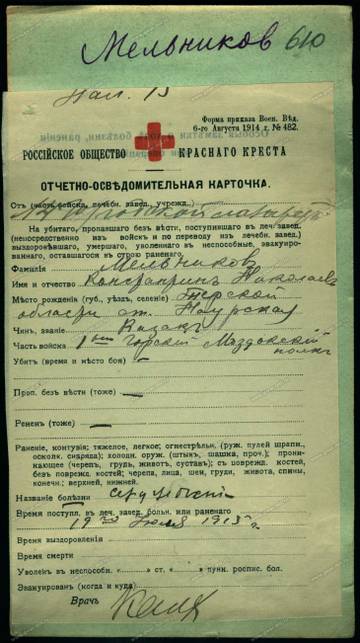 Мельников 610
Форма приказа Воен. Вѣд.
6-го Августа 1914 г. № 482.
РОССІЙСКОЕ ОБЩЕСТВО КРАСНАГО КРЕСТА
ОТЧЕТНО-ОСВѢДОМИТЕЛЬНАЯ КАРТОЧКА.
Отъ (часть войскъ, лечебн. завед., учрежд.)
На убитаго, пропавшаго безъ вѣсти, поступившаго въ леч. завед.
(непосредственно изъ войскъ и по переводу изъ лечебн. завед.)
выздоровѣвшаго, умершаго, уволеннаго въ неспособные, эвакуиро-
ваннаго, оставшагося въ строю раненаго.
Фамилія Мельников
Имя и отчество Константин Николаев
Мѣсто рожденія (губ., уѣздъ, селеніе) Терской
области ст. Наурская
Чинъ, званіе Казакъ
Часть войска 1 Горский Моздокский
полкъ
Убитъ (время и мѣсто боя) —
Проп. безъ вѣсти (тоже) —
Раненъ (тоже) —
Раненіе, контузія; тяжелое, легкое; огнестрѣльн. (руж. пулей шрапн.,
осколк. снаряда); холодн. оруж. (штыкъ, шашка, проч.); прони-
кающее (черепъ, грудь, животъ, суставъ); съ поврежд. костей,
безъ поврежд. костей; черепа, лица, шеи, груди, живота, спины,
конечн.; верхней, нижней.
Названіе болѣзни
Время поступл. въ леч. завед. больн. или раненаго
19 Июля 1915 г.
Время выздоровленія
Время смерти
Уволенъ въ неспособн. « » ст. « » пункт. роспис. бол.
Эвакуированъ (когда и куда)
Врачъ